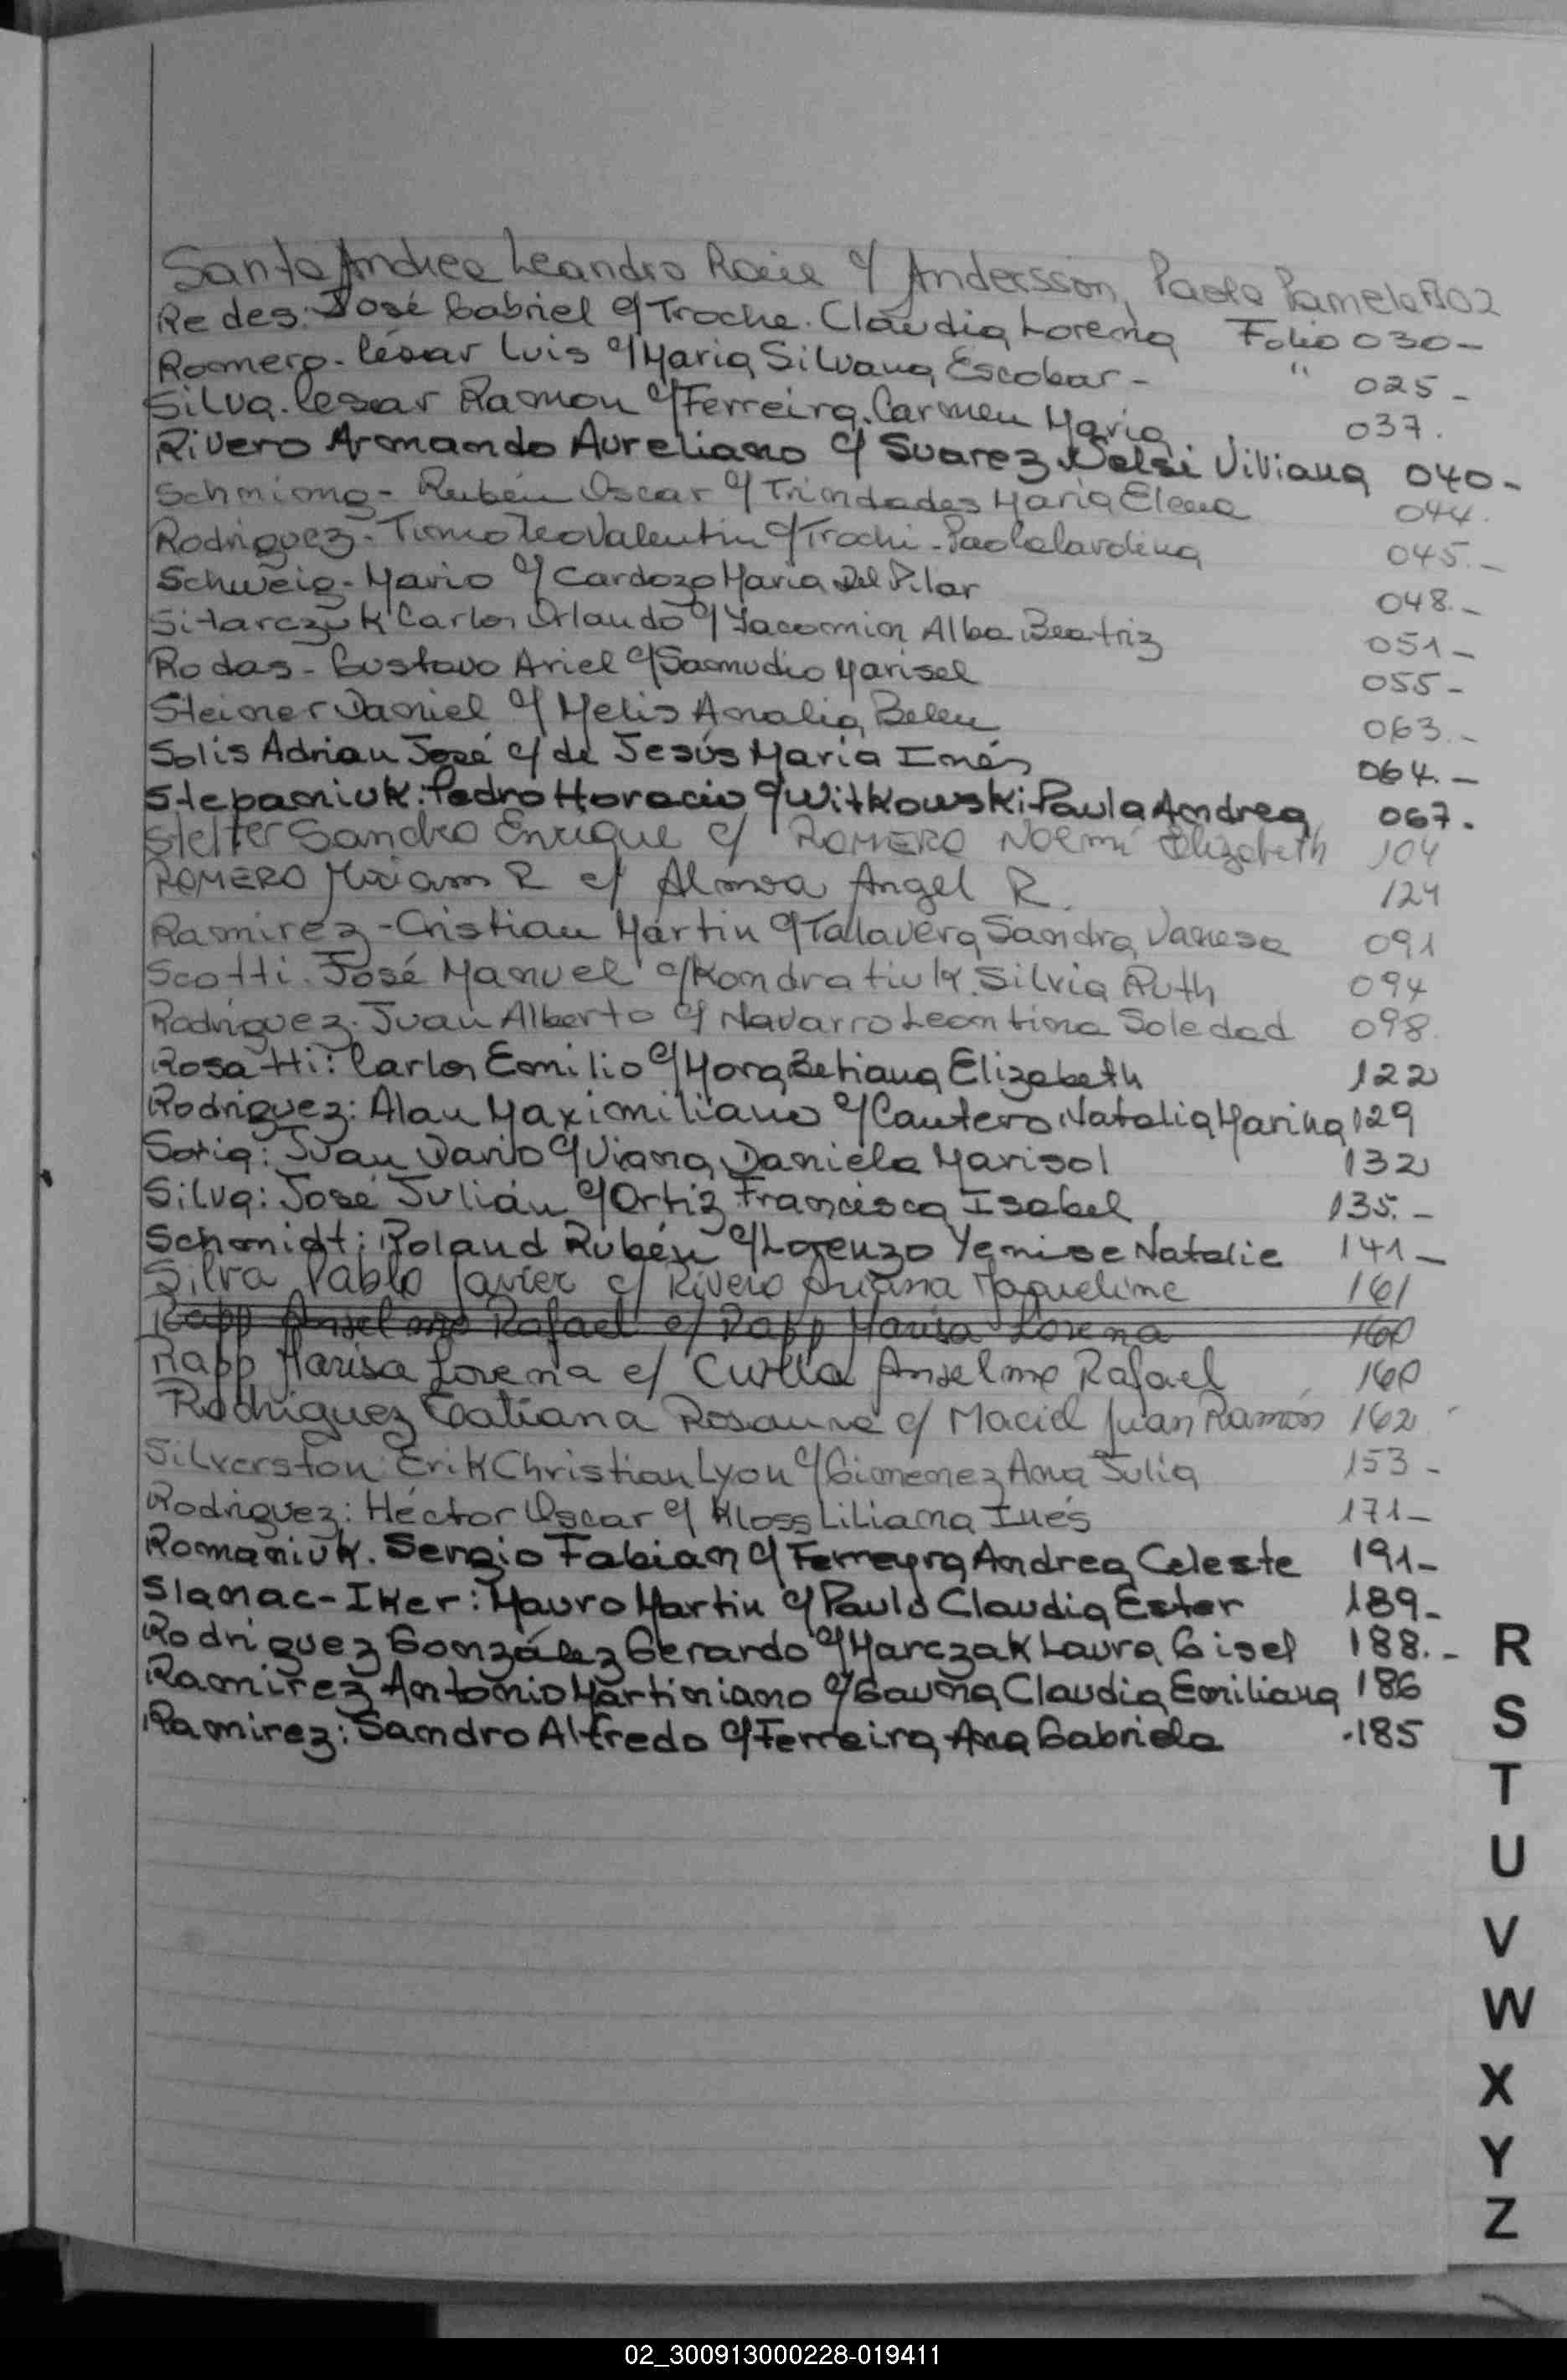 Santo Andrea Leandro c/ Andersson, Paola Pamela 102
Redes: José Gabriel c/ Troche. Claudia Lorena Folio 030-
Romero- César Luis c/ Maria Silvana Escobar - " 025-
Silva. Cesar Ramon c/ Ferreira. Carmen Maria 037.
Rivero Armando Aureliano c/ Suarez Nelsi Viviana 040-
Rubén Oscar c/ Trindades Maria Elena 044.
Rodriguez- Timoteo Valentin c/ Trochi- Paola 045.-
Schweig- Mario c/ Cardozo Maria Del Pilar 048.-
Sitarczuk Carlos Orlando c/ Alba Beatriz 051-
Rodas- Gustavo Ariel c/ Samudio Marisel 055-
Steiner Daniel c/ Melis Analia Belen 063.-
Solis Adrian José c/ de Jesús Maria Inés 064.-
Stepaniuk: Pedro Horacio c/ Witkowski Paula Andrea 067.
Stelter Sandro Enrique c/ ROMERO Noemí Elizabeth 104
ROMERO Miriam R c/ Angel R. 124
Ramirez- Cristian Martin c/ Talavera Sandra Vanesa 091
Scotti. José Manuel c/ Kondratiuk. Silvia Ruth 094
Rodriguez. Juan Alberto c/ Navarro Leontina Soledad 098.
Rosatti: Carlos Emilio c/ Mora Betiana Elizabeth 122
Rodriguez: Alan Maximiliano c/ Cantero Natalia Marina 129
Soria: Juan Dario c/ Viana Daniela Marisol 132
Silva: José Julián c/ Ortiz Francisca Isabel 135.-
Schmidt: Roland Rubén c/ Lorenzo Yenise Natalie 141-
Silva Pablo Javier c/ Rivero Ariana Jaqueline 161
Rapp Anselmo Rafael c/ Rapp Marisa Lorena 160
Rapp Marisa Lorena c/ Anselmo Rafael 160
Rodriguez Tatiana Rosaura c/ Maciel Juan Ramón 162
Silverston: Erik Christian Lyon c/ Gimenez Ana Julia 153-
Rodriguez: Héctor Oscar c/ Kloss Liliana Inés 171-
Romaniuk. Sergio Fabian c/ Ferreyra Andrea Celeste 191-
Slamac-Iker: Mauro Martin c/ Paulo Claudia Ester 189-
Rodriguez González Gerardo c/ Marczak Laura Gisel 188.-
Ramirez Antonio Martiniano c/ Gauna Claudia Emiliana 186
Ramirez: Sandro Alfredo c/ Ferreira Ana Gabriela -185
R
S
T
U
V
W
X
Y
Z
02_300913000228-019411